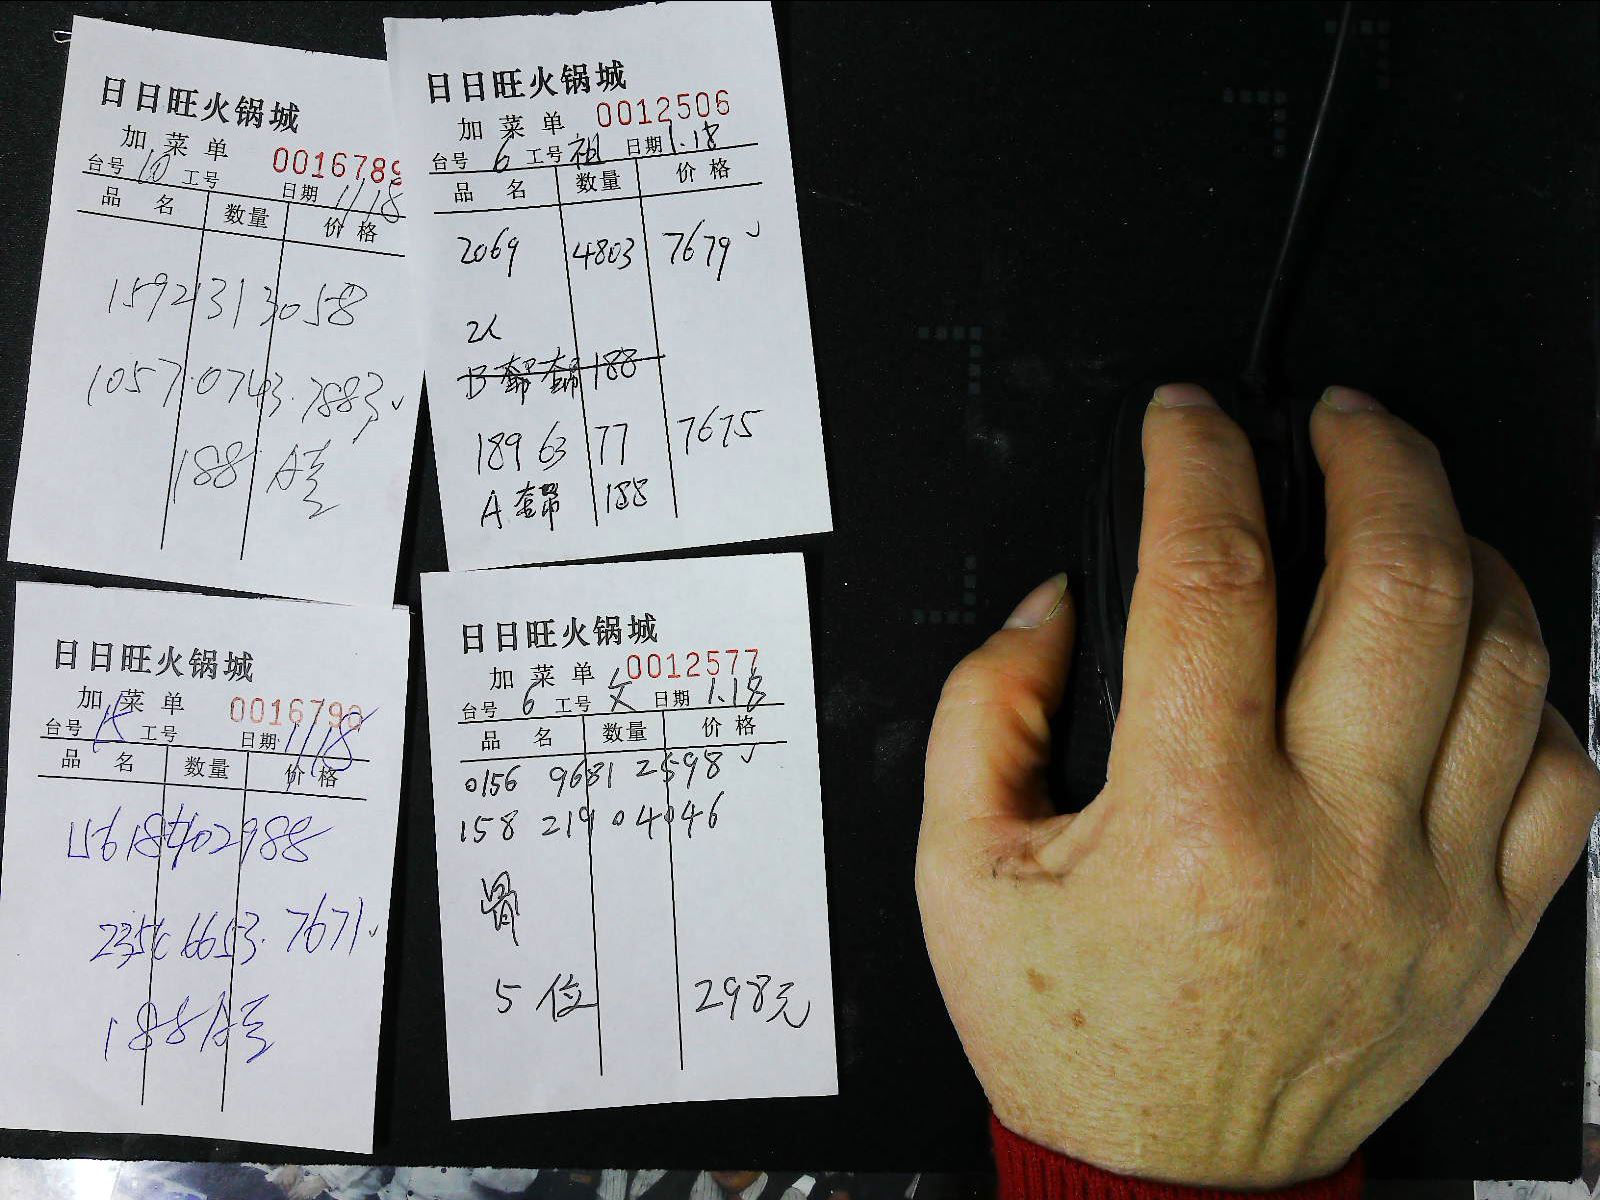 日日旺火锅城
加菜单 0016789
台号 10 工号 日期 1/18
品名 数量 价格
1592313058
1057.0743.7883
188 A套
日日旺火锅城
加菜单 0012506
台号 6 工号 祖 日期 1.18
品名 数量 价格
2069 4803 7679
2人
B套 188
189 63 77 7675
A套 188
日日旺火锅城
加菜单 0016790
台号 工号 日期 1/18
品名 数量 价格
15618402988
6653.7671
188A套
日日旺火锅城
加菜单 0012577
台号 6 工号 文 日期 1.18
品名 数量 价格
0156 9681 2598
158 219 04046
骨
5位 298元